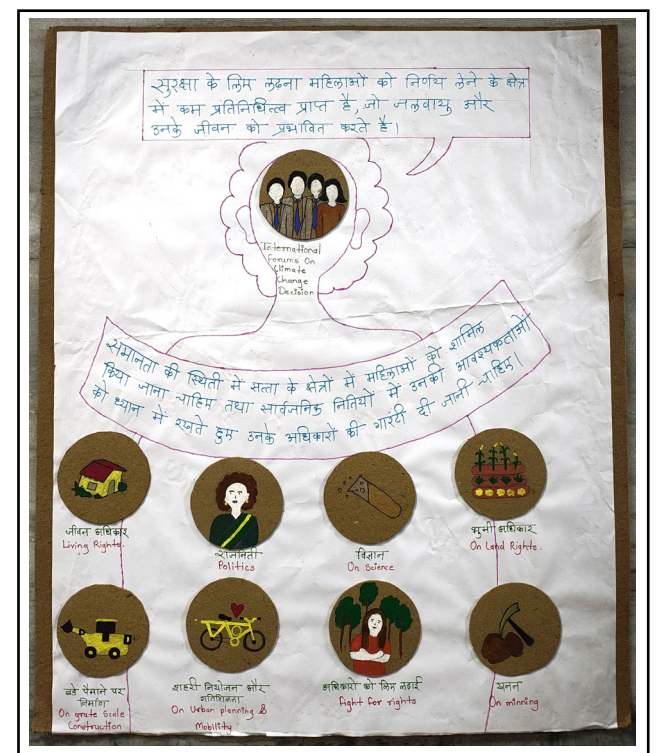 सुरक्षा के लिए लढना महिलाओं को निर्णय लेने के क्षेत्र
में कम प्रतिनिधित्व प्राप्त है, जो जलवायु और
उनके जीवन को प्रभावित करते है।
International
forums On
Climate
Change
Decision
समानता की स्थिती में सत्ता के क्षेत्रों में महिलाओं को शामिल
किया जाना चाहिए तथा सार्वजनिक नितियों में उनकी आवश्यकताओं
को ध्यान में रखते हुए उनके अधिकारों की गारंटी दी जानी चाहिए।
जीवन अधिकार
Living Rights.
राजनिती
Politics
विज्ञान
On Science
भुमी अधिकार
On Land Rights.
बडे पैमाने पर
निर्माण
On grate Scale
Construction
शहरी नियोजन और
गतिशिलता
On Urban planning &
Mobility
अधिकारों को लिए लढाई
fight for rights
खनन
On minning